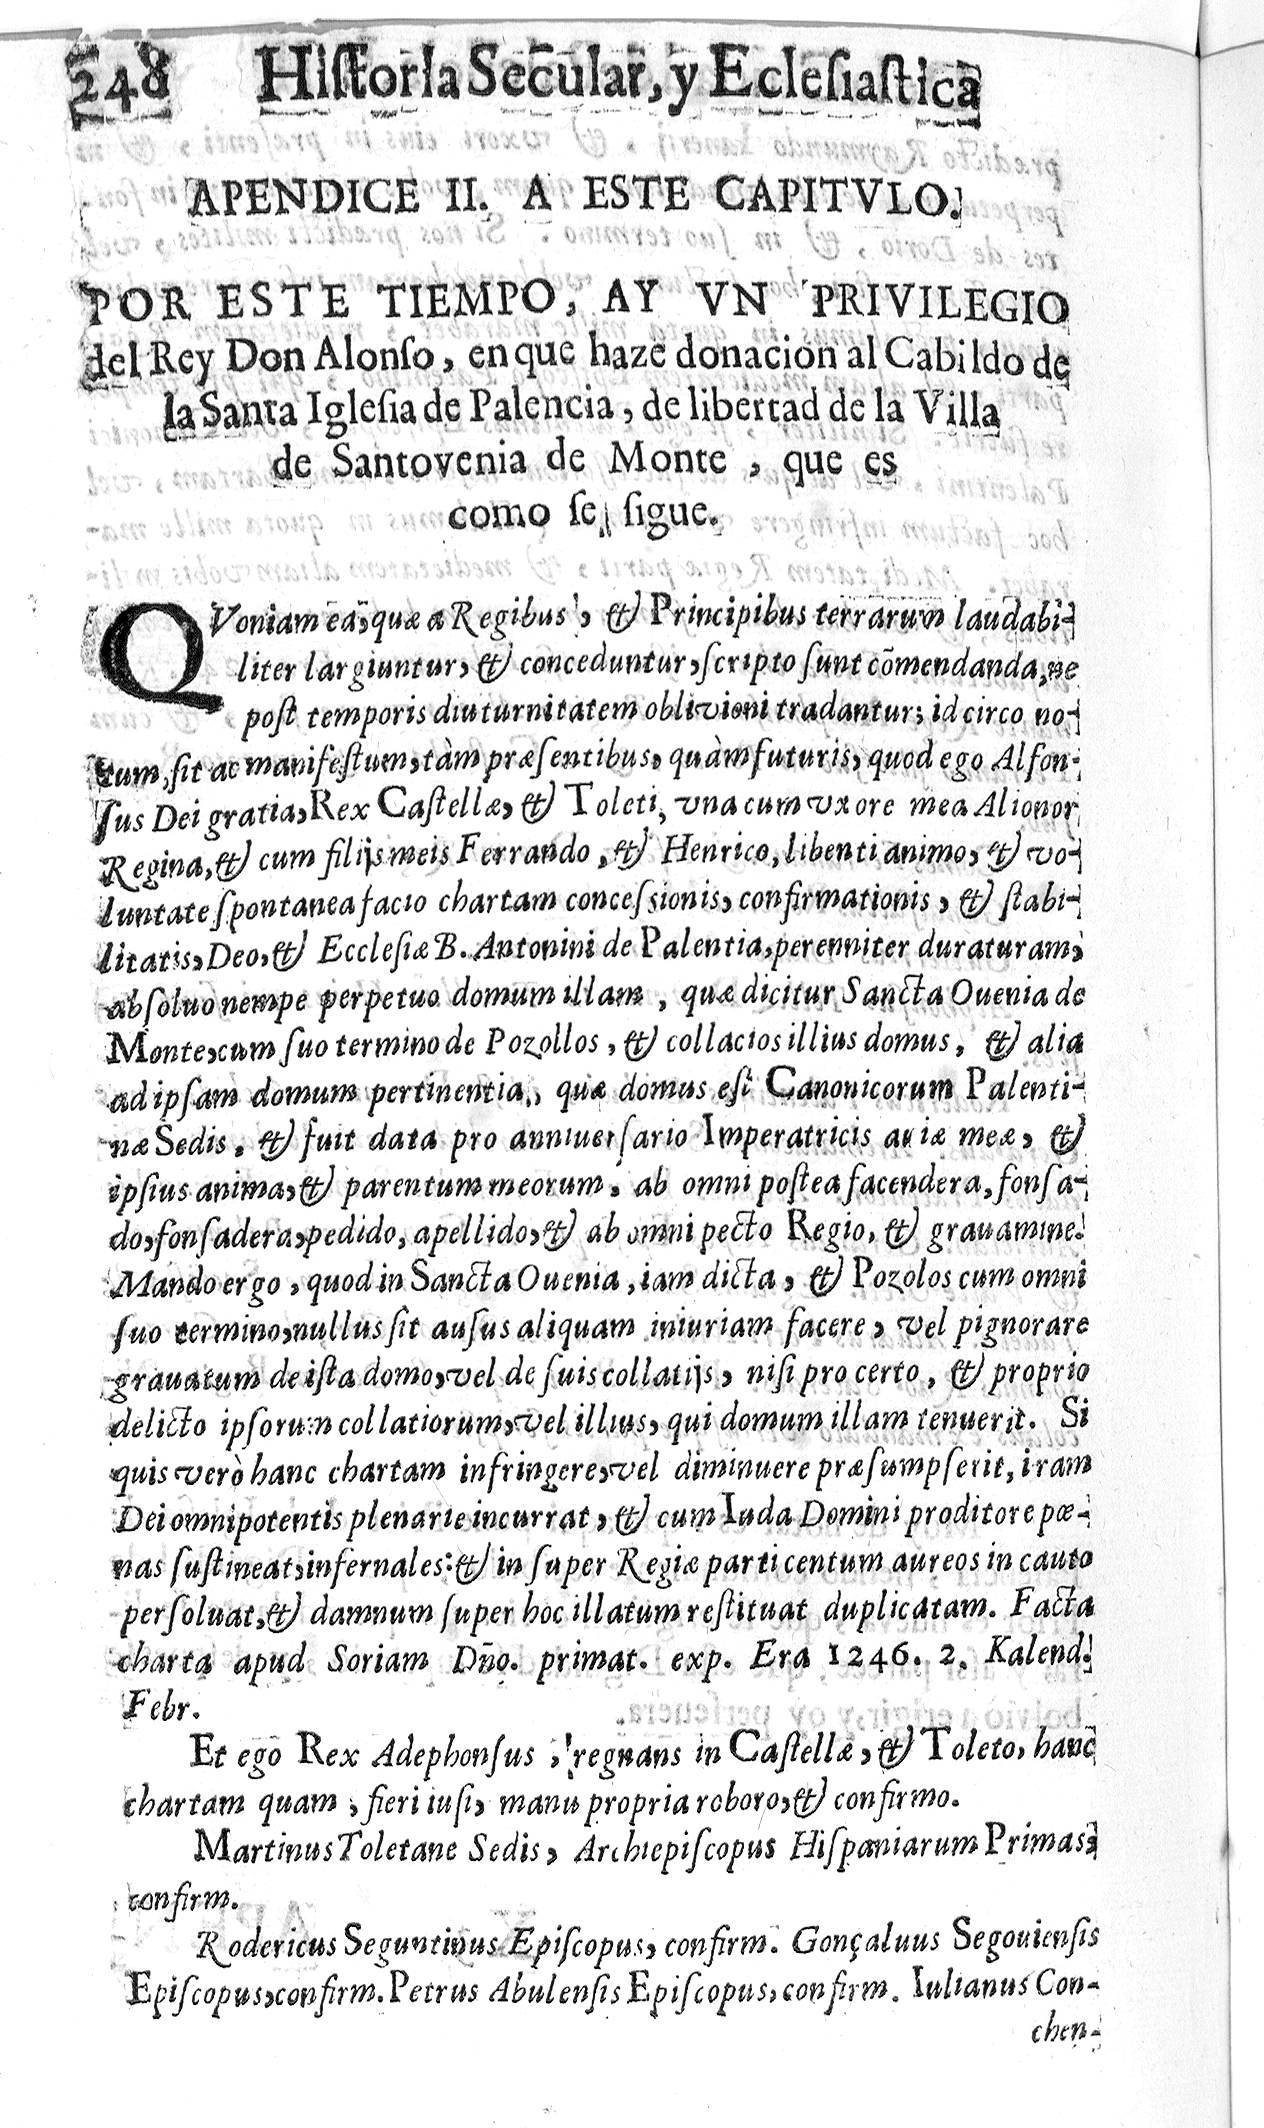 248 Hiſtoria Secular, y Ecleſiaſtica
APENDICE II. A ESTE CAPITVLO.
POR ESTE TIEMPO, AY VN PRIVILEGIO
del Rey Don Alonſo, en que haze donacion al Cabildo de
la Santa Igleſia de Palencia, de libertad de la Villa
de Santovenia de Monte, que es
como ſe ſigue.
QVoniam ea, quæ a Regibus, & Principibus terrarum laudabi-
liter largiuntur, & conceduntur, ſcripto ſunt cõmendanda, ne
poſt temporis diuturnitatem oblivioni tradantur; id circo no-
tum, ſit ac manifeſtum, tàm præſentibus, quàm futuris, quod ego Alfon-
ſus Dei gratia, Rex Caſtellæ, & Toleti, vna cum vxore mea Alionor
Regina, & cum filijs meis Ferrando, & Henrico, libenti animo, & vo-
luntate ſpontanea facio chartam conceſsionis, confirmationis, & ſtabi-
litatis, Deo, & Eccleſiæ B. Antonini de Palentia, perenniter duraturam,
abſoluo nempe perpetuo domum illam, quæ dicitur Sancta Ouenia de
Monte, cum ſuo termino de Pozollos, & collacios illius domus, & alia
ad ipſam domum pertinentia, quæ domus eſt Canonicorum Palenti-
næ Sedis, & fuit data pro anniuerſario Imperatricis auiæ meæ, &
ipſius anima, & parentum meorum, ab omni poſtea facendera, fonſa-
do, fonſadera, pedido, apellido, & ab omni pecto Regio, & grauamine.
Mando ergo, quod in Sancta Ouenia, iam dicta, & Pozolos cum omni
ſuo termino, nullus ſit auſus aliquam iniuriam facere, vel pignorare
grauatum de iſta domo, vel de ſuis collatijs, niſi pro certo, & proprio
delicto ipſorum collatiorum, vel illius, qui domum illam tenuerit. Si
quis verò hanc chartam infringere, vel diminuere præſumpſerit, iram
Dei omnipotentis plenarie incurrat, & cum Iuda Domini proditore pæ-
nas ſuſtineat, infernales: & in ſuper Regiæ parti centum aureos in cauto
perſoluat, & damnum ſuper hoc illatum reſtituat duplicatam. Facta
charta apud Soriam Dño. primat. exp. Era 1246. 2. Kalend.
Febr.
Et ego Rex Adephonſus, regnans in Caſtellæ, & Toleto, hanc
chartam quam, fieri iuſi, manu propria roboro, & confirmo.
Martinus Toletane Sedis, Archiepiſcopus Hiſpaniarum Primas,
confirm.
Rodericus Seguntinus Epiſcopus, confirm. Gonçaluus Segouienſis
Epiſcopus, confirm. Petrus Abulenſis Epiſcopus, confirm. Iulianus Con-
chen-